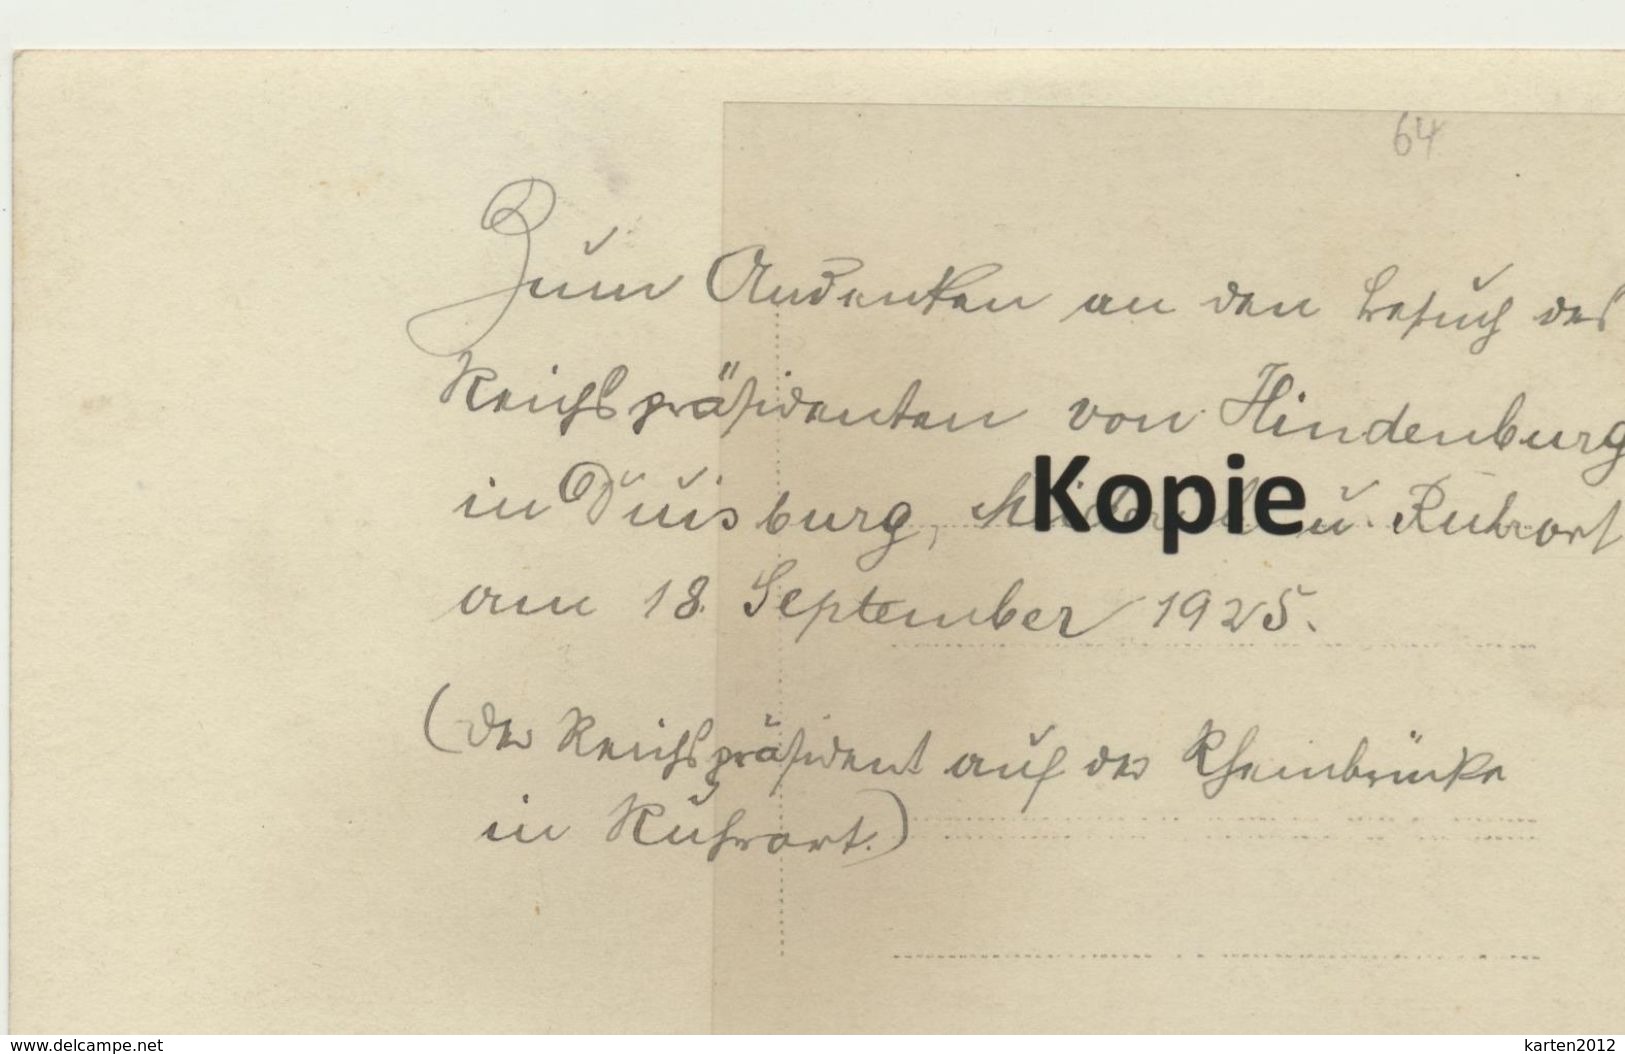 64
Zum Andenken an den Besuch des
Reichspräsidenten von Hindenburg
in Duisburg, u. Ruhrort
Kopie
am 18. September 1925.
(der Reichspräsident auf der Rheinbrücke
in Ruhrort.)
www.delcampe.net
karten2012